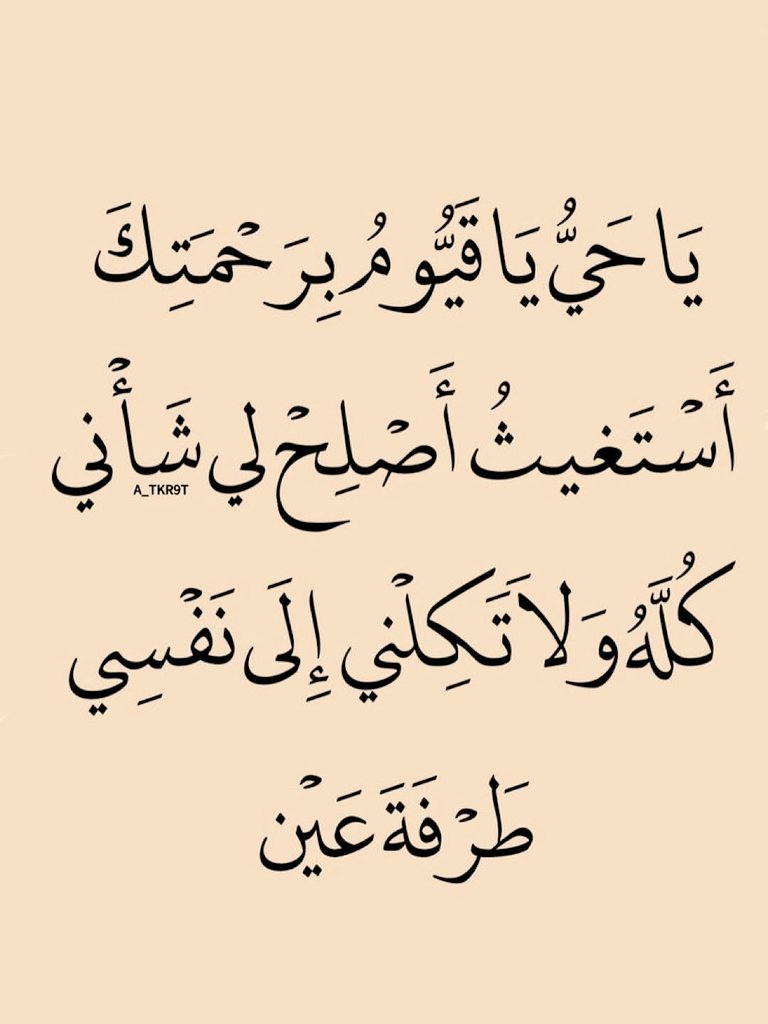 يَا حَيُّ يَا قَيُّومُ بِرَحْمَتِكَ
أَسْتَغيثُ أَصْلِحْ لي شَأْني
A_TKR9T
كُلَّهُ وَلاَ تَكِلْني إِلَى نَفْسِي
طَرْفَةَ عَيْن